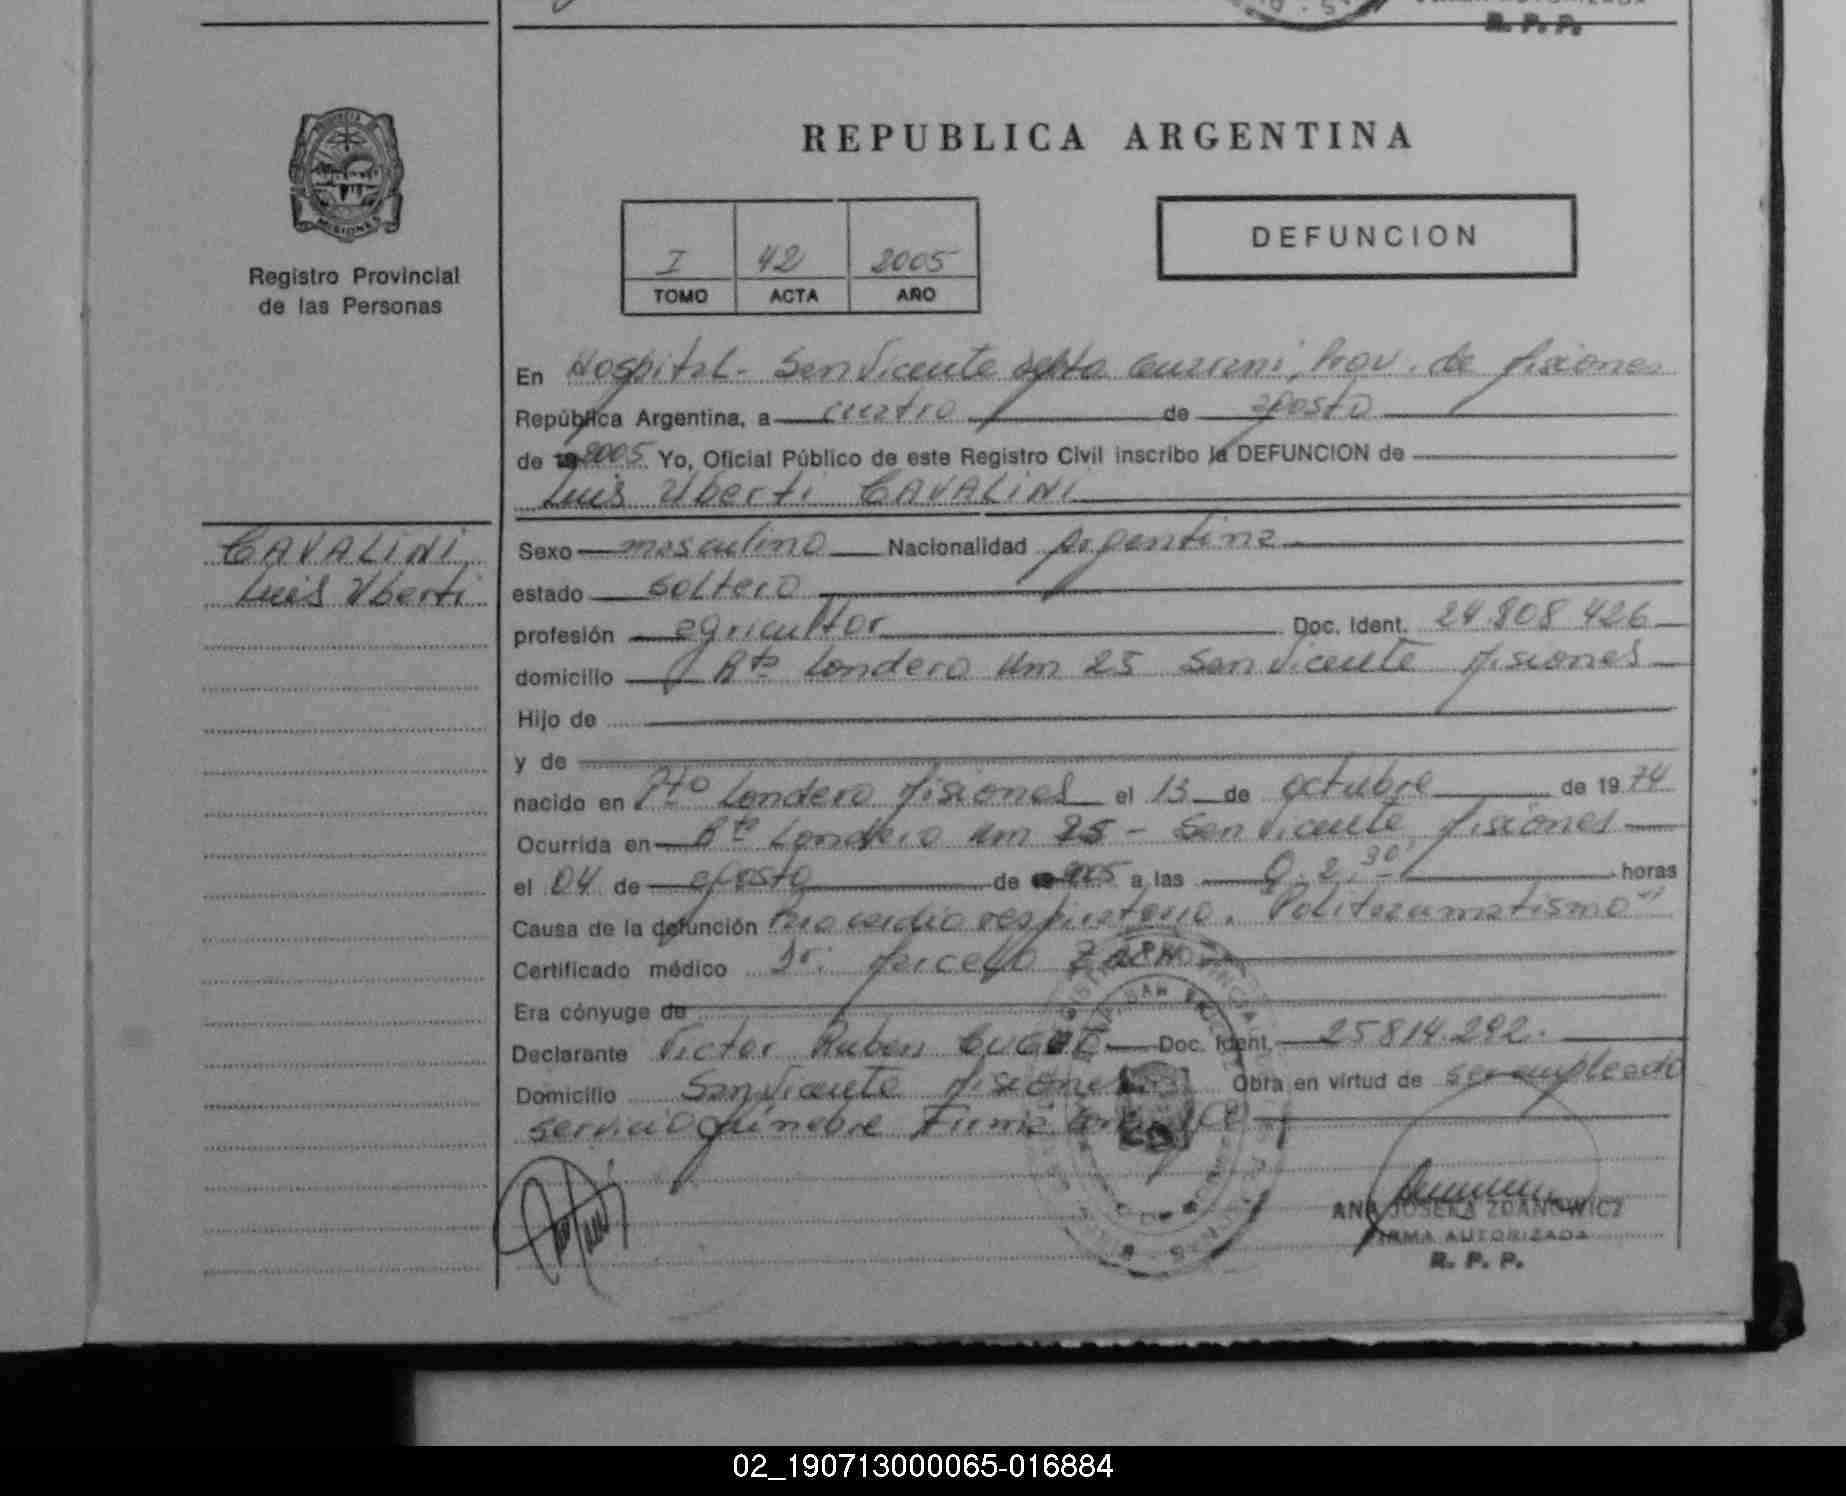 R. P. P.
REPUBLICA ARGENTINA
I 42 2005
TOMO ACTA AÑO
DEFUNCION
PROVINCIA
MISIONES
Registro Provincial
de las Personas
En Hospital - San Vicente dpto Guarani, Prov. de Misiones
República Argentina, a cuatro de agosto
de 2005 Yo, Oficial Público de este Registro Civil inscribo la DEFUNCION de
Luis Uberti CAVALINI
CAVALINI
Luis Uberti
Sexo masculino Nacionalidad Argentina
estado soltero
profesión agricultor Doc. Ident. 24.808 426
domicilio Pto Londero Km 25 San Vicente Misiones
Hijo de
y de
nacido en Pto Londero Misiones el 13 de octubre de 1974
Ocurrida en Pto Londero Km 25 - San Vicente Misiones
el 04 de agosto de 2005 a las 30' horas
Causa de la defunción Paro cardio respiratorio.
Certificado médico Dr. Marcelo
Era cónyuge de
Declarante Victor Ruben Doc. Ident. 25814.292.
Domicilio San Vicente Misiones Obra en virtud de ser empleado
servicio fúnebre Firma
ANA JOSEFA ZDANOWICZ
FIRMA AUTORIZADA
R. P. P.
02_190713000065-016884